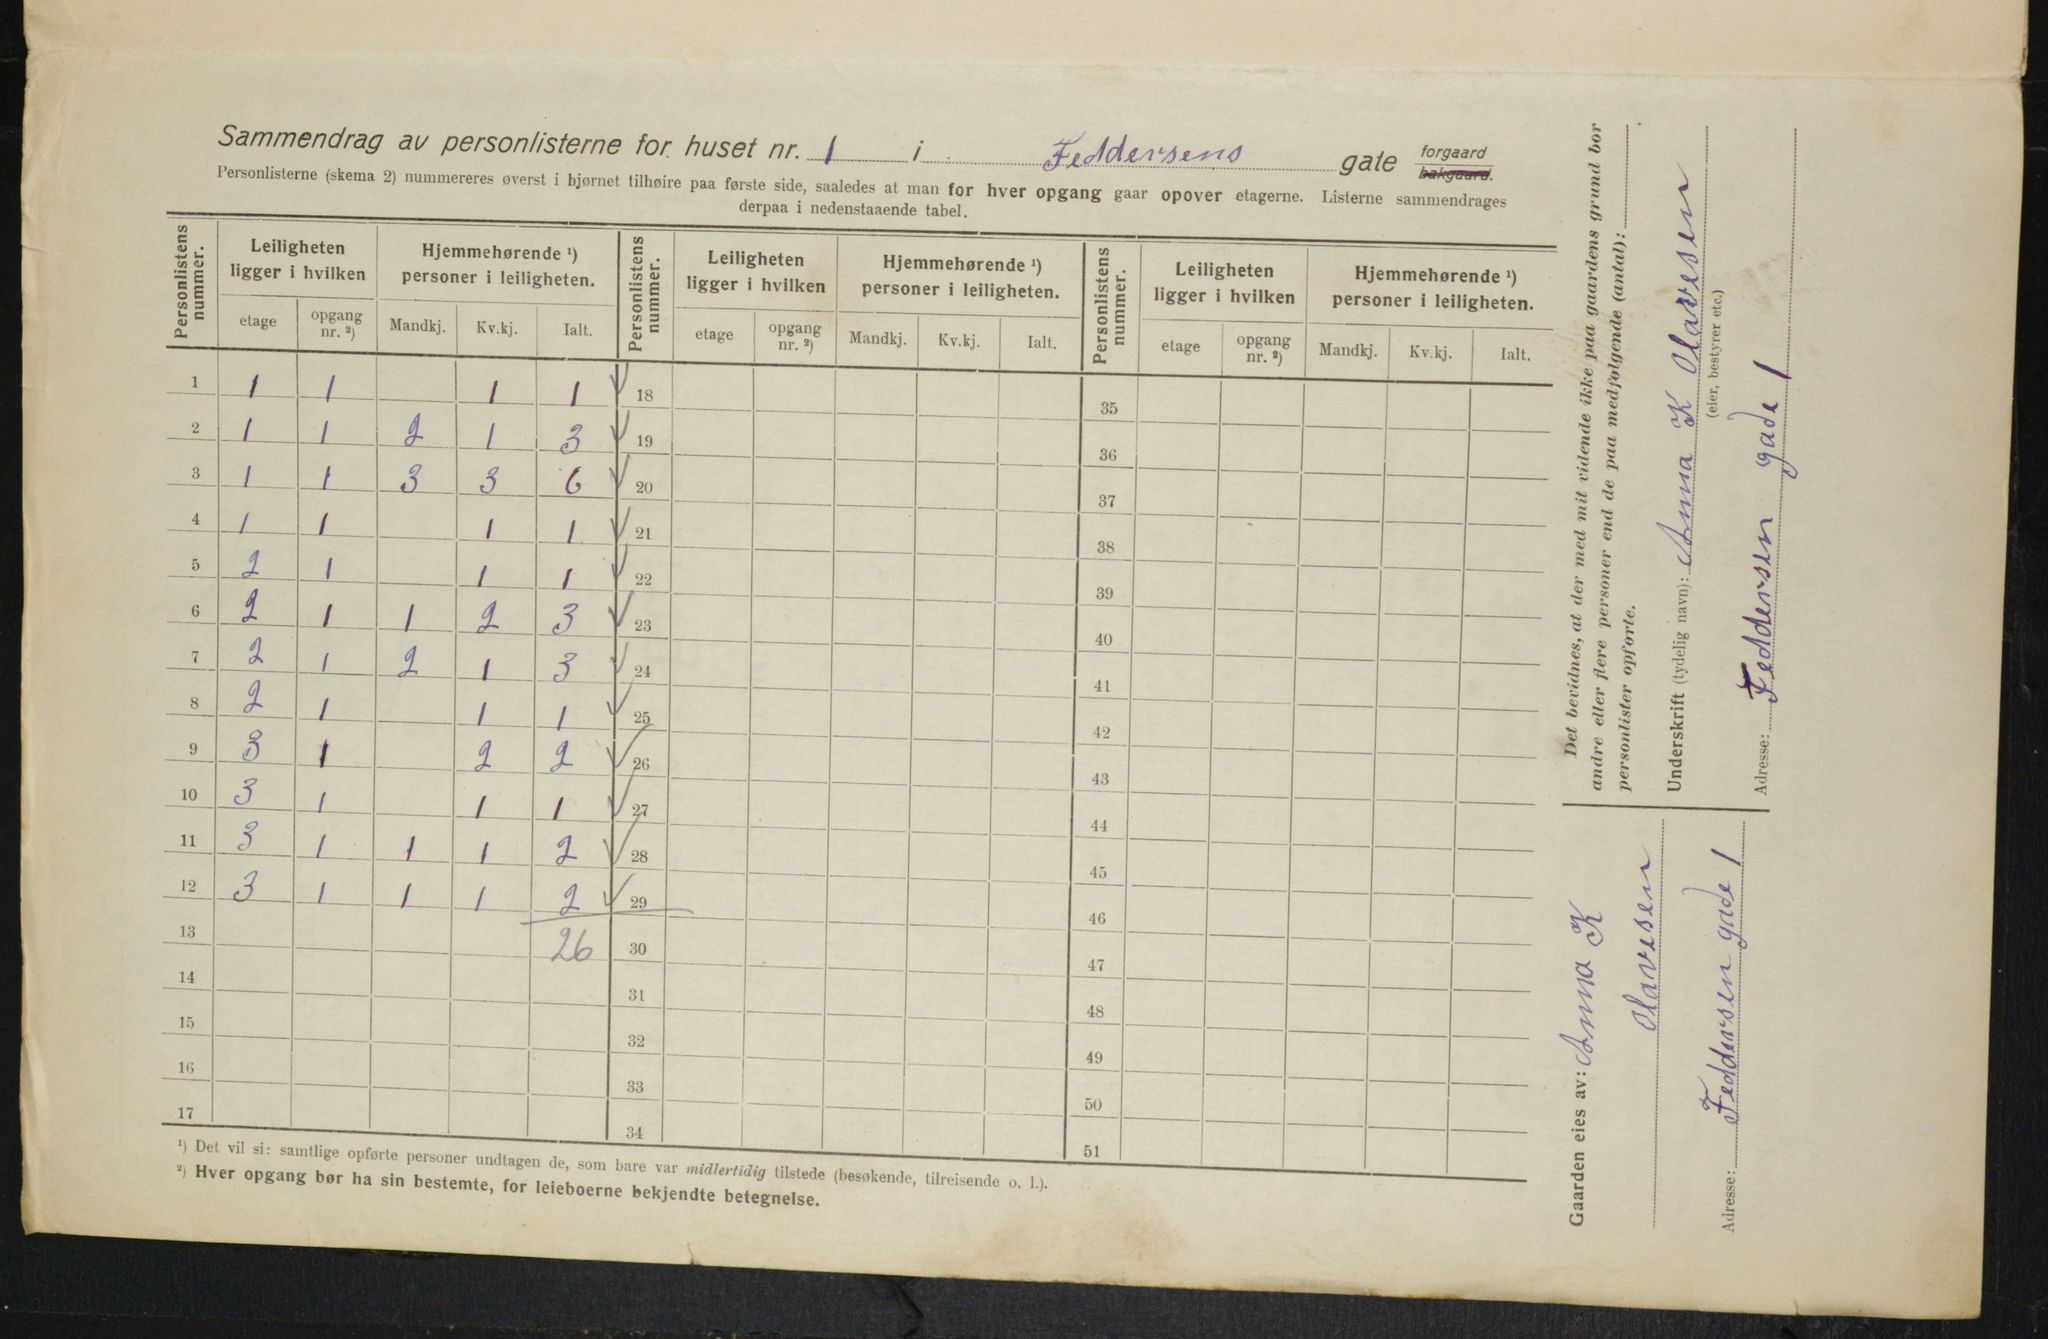 Sammendrag av personlisterne for huset nr. 1 i Feddersens gate forgaard bakgaard.
Personlisterne (skema 2) nummereres øverst i hjørnet tilhøire paa første side, saaledes at man for hver opgang gaar opover etagerne. Listerne sammendrages
derpaa i nedenstaaende tabel.
Personlistens nummer. Leiligheten ligger i hvilken Hjemmehørende ¹) personer i leiligheten. Personlistens nummer. Leiligheten ligger i hvilken Hjemmehørende ¹) personer i leiligheten. Personlistens nummer. Leiligheten ligger i hvilken Hjemmehørende ¹) personer i leiligheten.
etage opgang nr. ²) Mandkj. Kv.kj. Ialt. etage opgang nr. ²) Mandkj. Kv.kj. Ialt. etage opgang nr. ²) Mandkj. Kv.kj. Ialt.
1 1 1 1 1 ✓ 18 35
2 1 1 2 1 3 ✓ 19 36
3 1 1 3 3 6 ✓ 20 37
4 1 1 1 1 ✓ 21 38
5 2 1 1 1 ✓ 22 39
6 2 1 1 2 3 ✓ 23 40
7 2 1 2 1 3 ✓ 24 41
8 2 1 1 1 ✓ 25 42
9 3 1 2 2 ✓ 26 43
10 3 1 1 1 ✓ 27 44
11 3 1 1 1 2 ✓ 28 45
12 3 1 1 1 2 ✓ 29 46
13 26 30 47
14 31 48
15 32 49
16 33 50
17 34 51
¹) Det vil si: samtlige opførte personer undtagen de, som bare var midlertidig tilstede (besøkende, tilreisende o. l.).
²) Hver opgang bør ha sin bestemte, for leieboerne bekjendte betegnelse.
Det bevidnes, at der med mit vidende ikke paa gaardens grund bor
andre eller flere personer end de paa medfolgende (antal):
personlister opførte.
Underskrift (tydelig navn): Anna K Olavesen
(eier, bestyrer etc.)
Adresse: Feddersen gade 1
Gaarden eies av: Anna K
Olavesen
Adresse: Feddersen gade 1